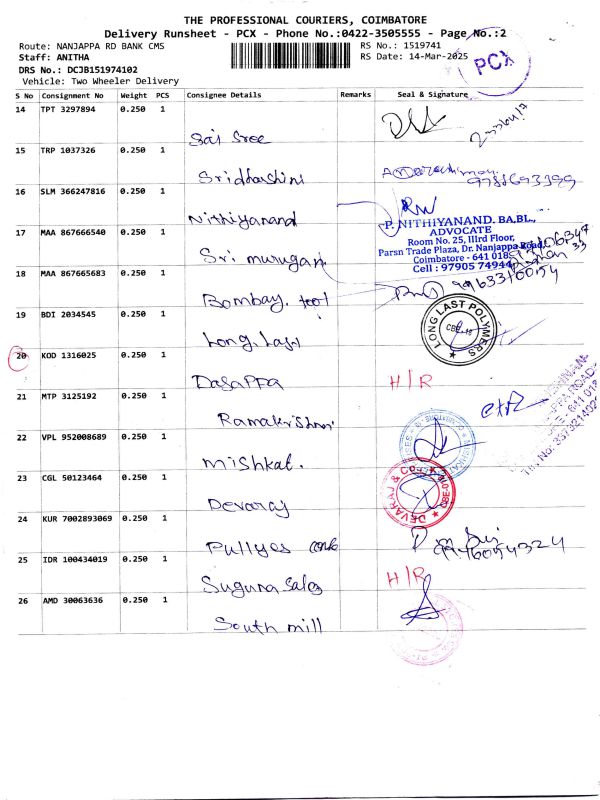 THE PROFESSIONAL COURIERS, COIMBATORE
Delivery Runsheet - PCX - Phone No.:0422-3505555 - Page No.:2
Route: NANJAPPA RD BANK CMS
RS No.: 1519741
Staff: ANITHA
RS Date: 14-Mar-2025
DRS No.: DCJB151974102
PCX
Vehicle: Two Wheeler Delivery
S No Consignment No Weight PCS Consignee Details Remarks Seal & Signature
14 TPT 3297894 0.250 1
Sai Sree
15 TRP 1037326 0.250 1
Sridharshini
16 SLM 366247816 0.250 1
Nithiyanand
P. NITHIYANAND. BA,BL.,
ADVOCATE
Room No. 25, IIIrd Floor,
Parsn Trade Plaza, Dr. Nanjappa Road,
Coimbatore - 641 018.
Cell : 97905 74944
17 MAA 867666540 0.250 1
Sri murugan
18 MAA 867665683 0.250 1
Bombay. tool
19 BDI 2034545 0.250 1
Long. Last
LONG LAST POLYMERS
CBE-18
20 KOD 1316025 0.250 1
Dasappa
H/R
21 MTP 3125192 0.250 1
Ramakrishnan
22 VPL 952008689 0.250 1
Mishkat.
23 CGL 50123464 0.250 1
Devaraj
DEVARAJ & CO
24 KUR 7002893069 0.250 1
Pullyes
25 IDR 100434019 0.250 1
Suguna Sales
H/R
26 AMD 30063636 0.250 1
South mill